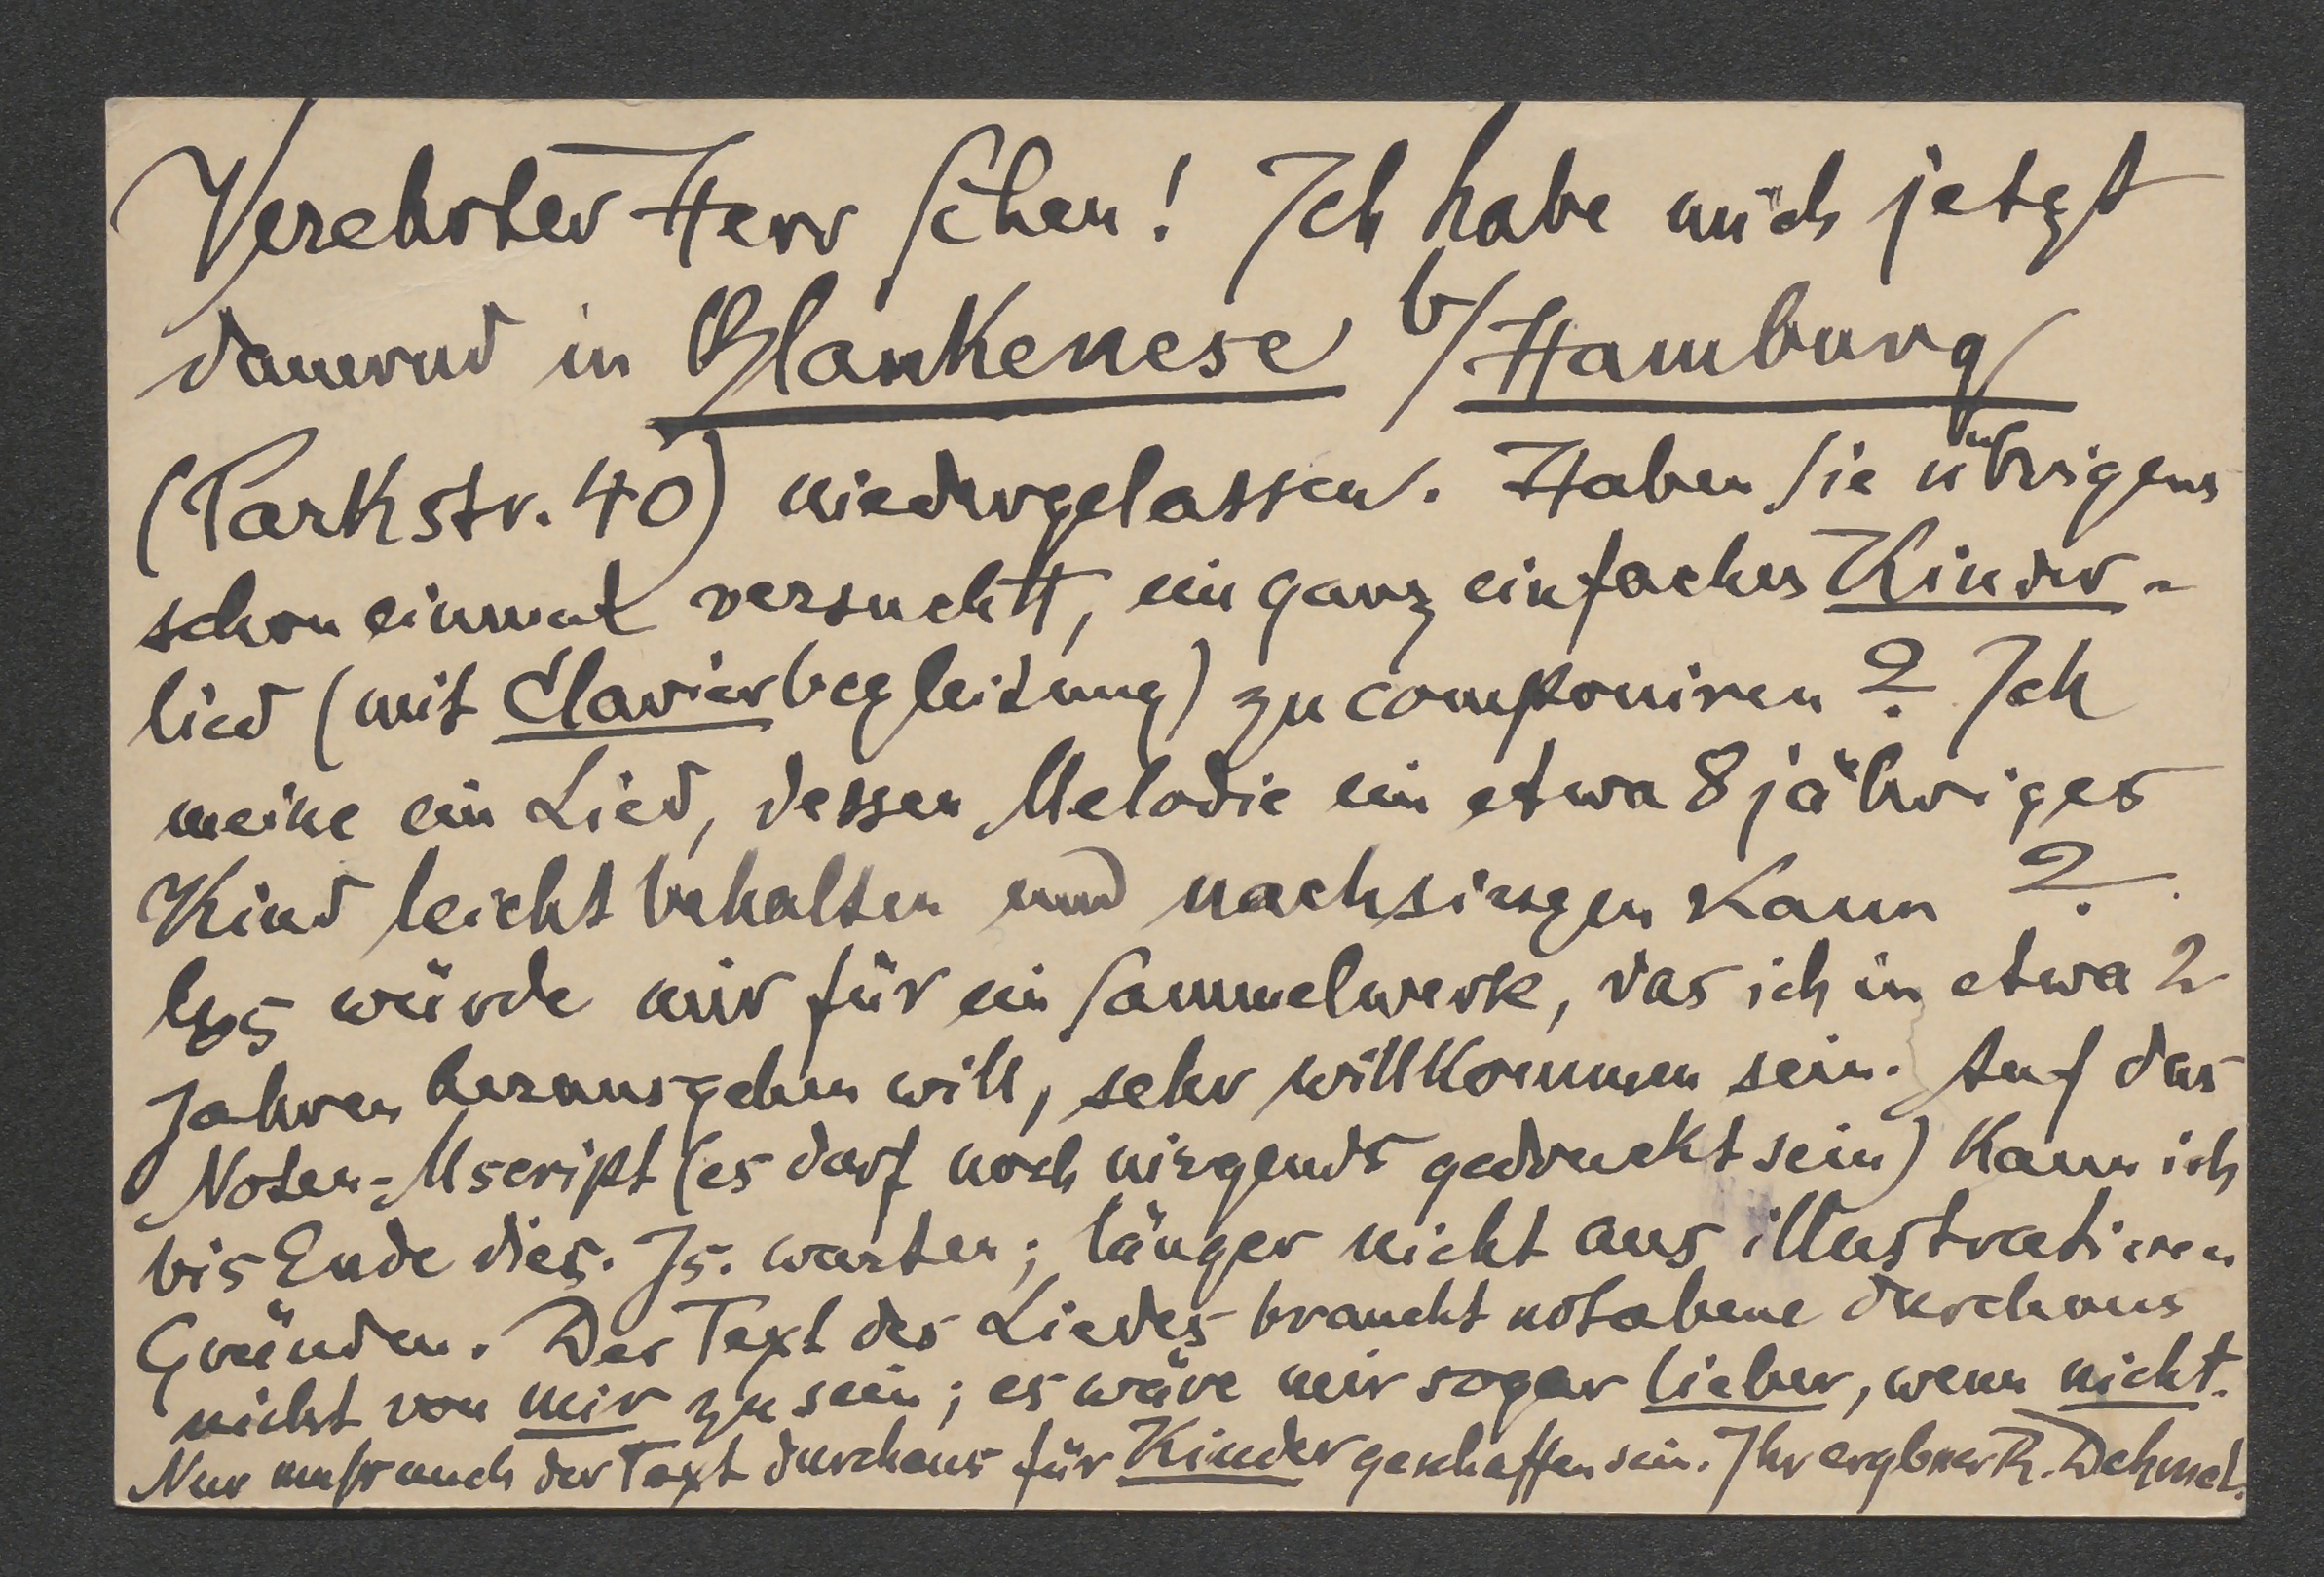 Verehrter Herr Schen! Ich habe mich jetzt
dauernd in Blankenese b/Hamburg
(Parkstr. 40) niedergelassen. Haben Sie übrigens
schon einmal versucht, ein ganz einfaches Kinder-
lied (mit Clavierbegleitung) zu componiren? Ich
meine ein Lied, dessen Melodie ein etwa 8jähriges
Kind leicht behalten und nachsingen kann?
Es würde mir für ein Sammelwerk, das ich in etwa 2
Jahren herausgeben will, sehr willkommen sein. Auf das
Noten-Mscript (es darf noch nirgends gedruckt sein) kann ich
bis Ende dies. Js. warten; länger nicht aus illustrativen
Gründen. Der Text des Liedes braucht notabene durchaus
nicht von mir zu sein; es wäre mir sogar lieber, wenn nicht.
Nur muß auch der Text durchaus für Kinder geschaffen sein. Ihr ergbner R. Dehmel.